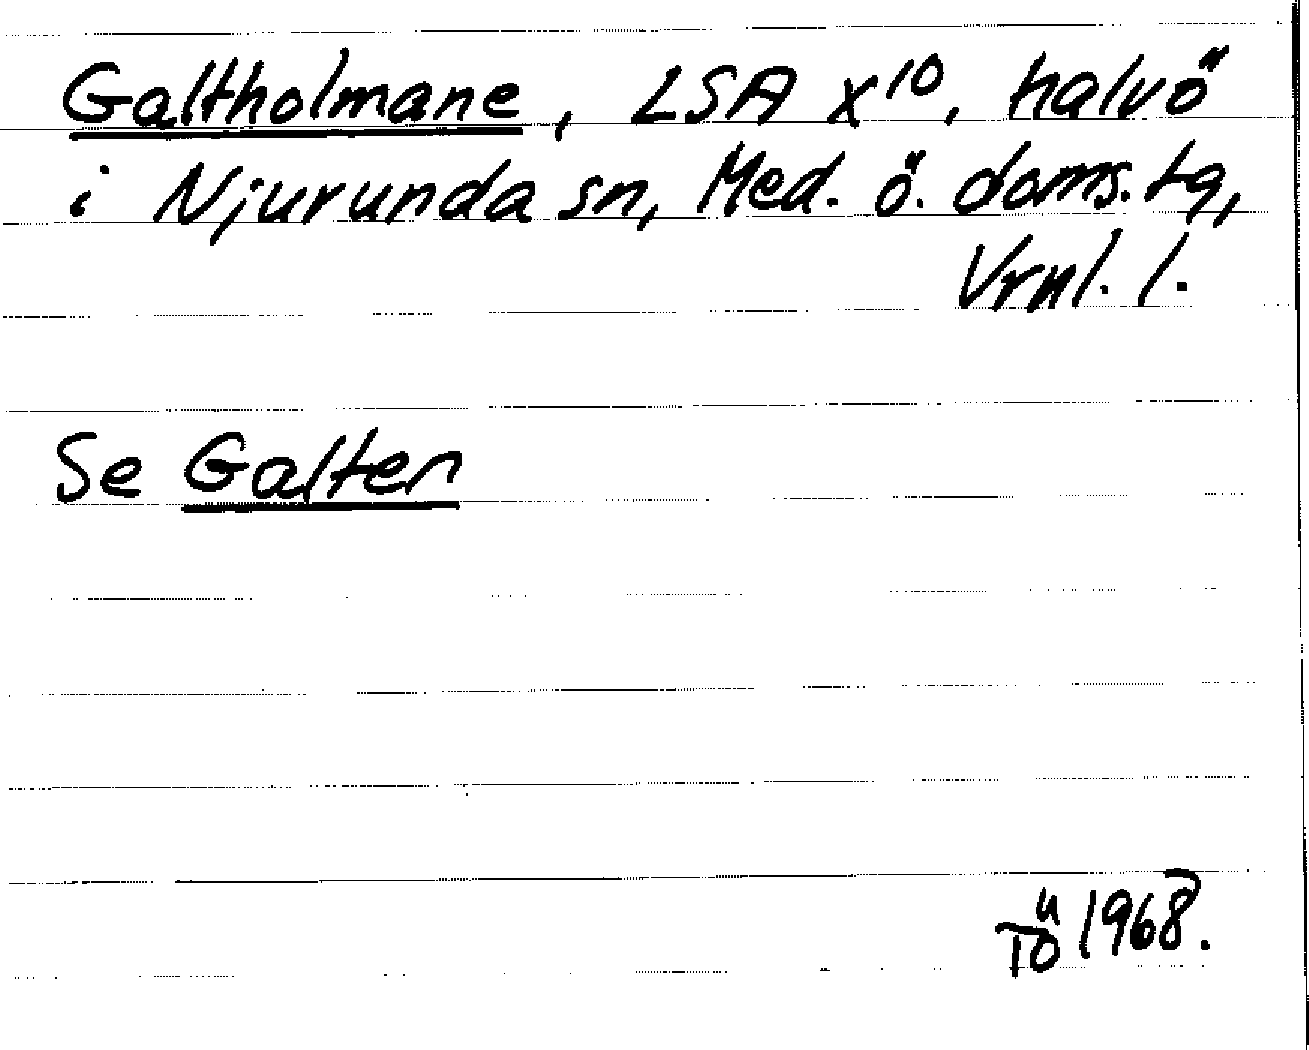 Galtholmane, LSA X10, halvö
i Njurunda sn, Med. ö. doms. tg,
Vrnl. l.
Se Galten
TÖ 1968.